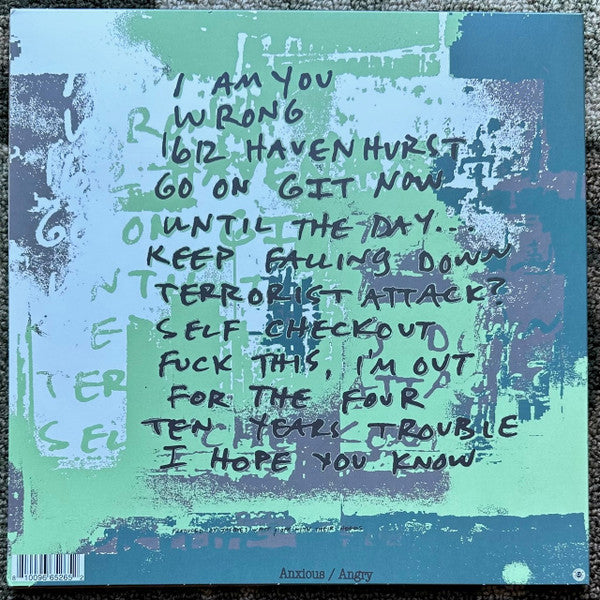 I AM YOU
WRONG
1612 HAVENHURST
GO ON GIT NOW
UNTIL THE DAY...
KEEP FALLING DOWN
TERRORIST ATTACK?
SELF CHECKOUT
FUCK THIS, I'M OUT
FOR THE FOUR
TEN YEARS TROUBLE
I HOPE YOU KNOW
8 10096 65265 2
Anxious / Angry